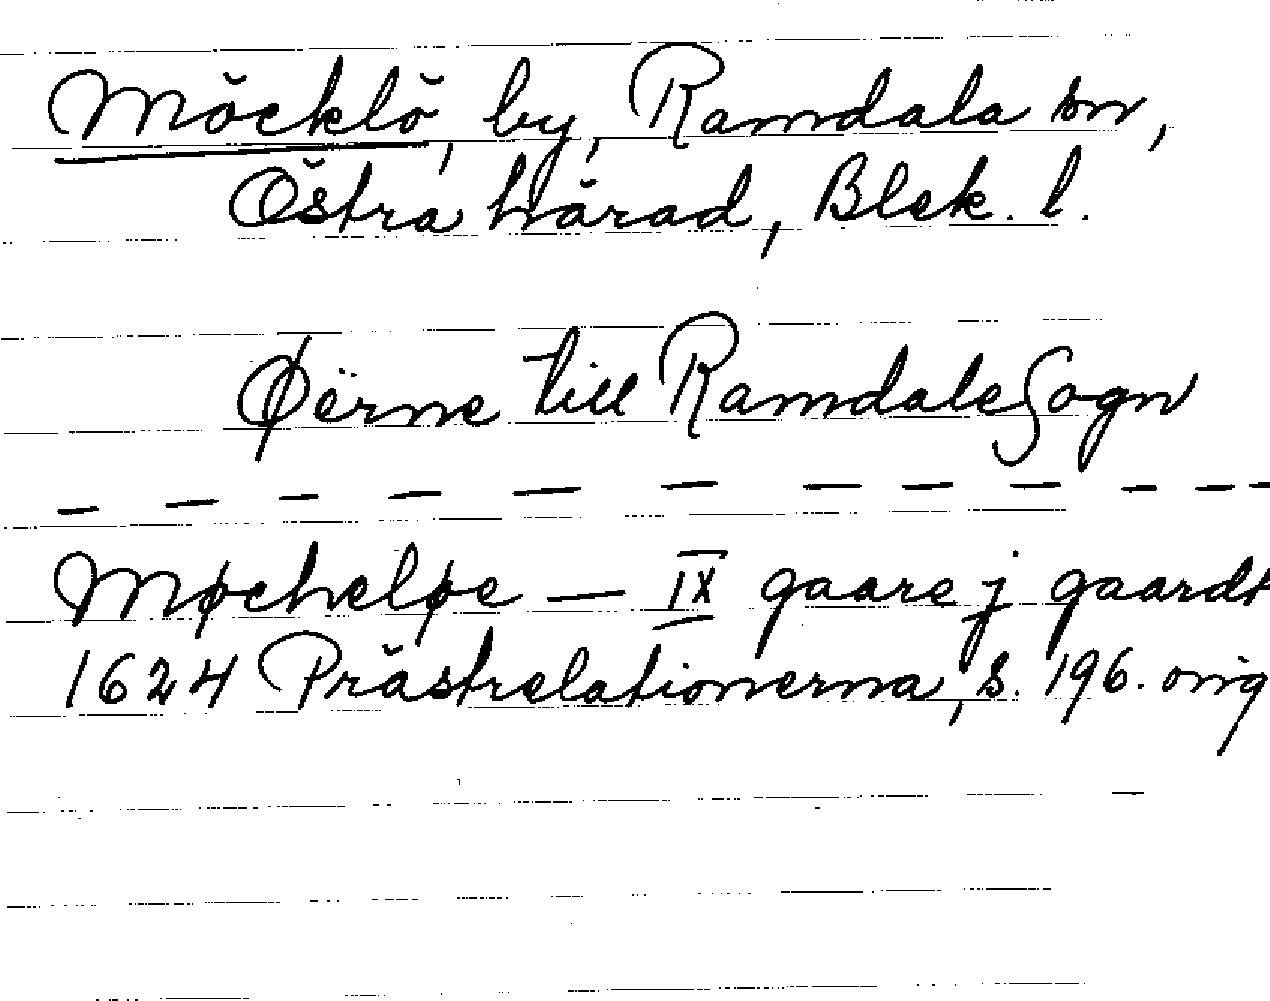 Möcklö, by, Ramdala sn,
Östra härad, Blek. l.
Øërne till Ramdale Sogn
— — — — — — — — — — —
Møcheløe — IX gaare j gaardt
1624 Prästrelationerna, s. 196. orig